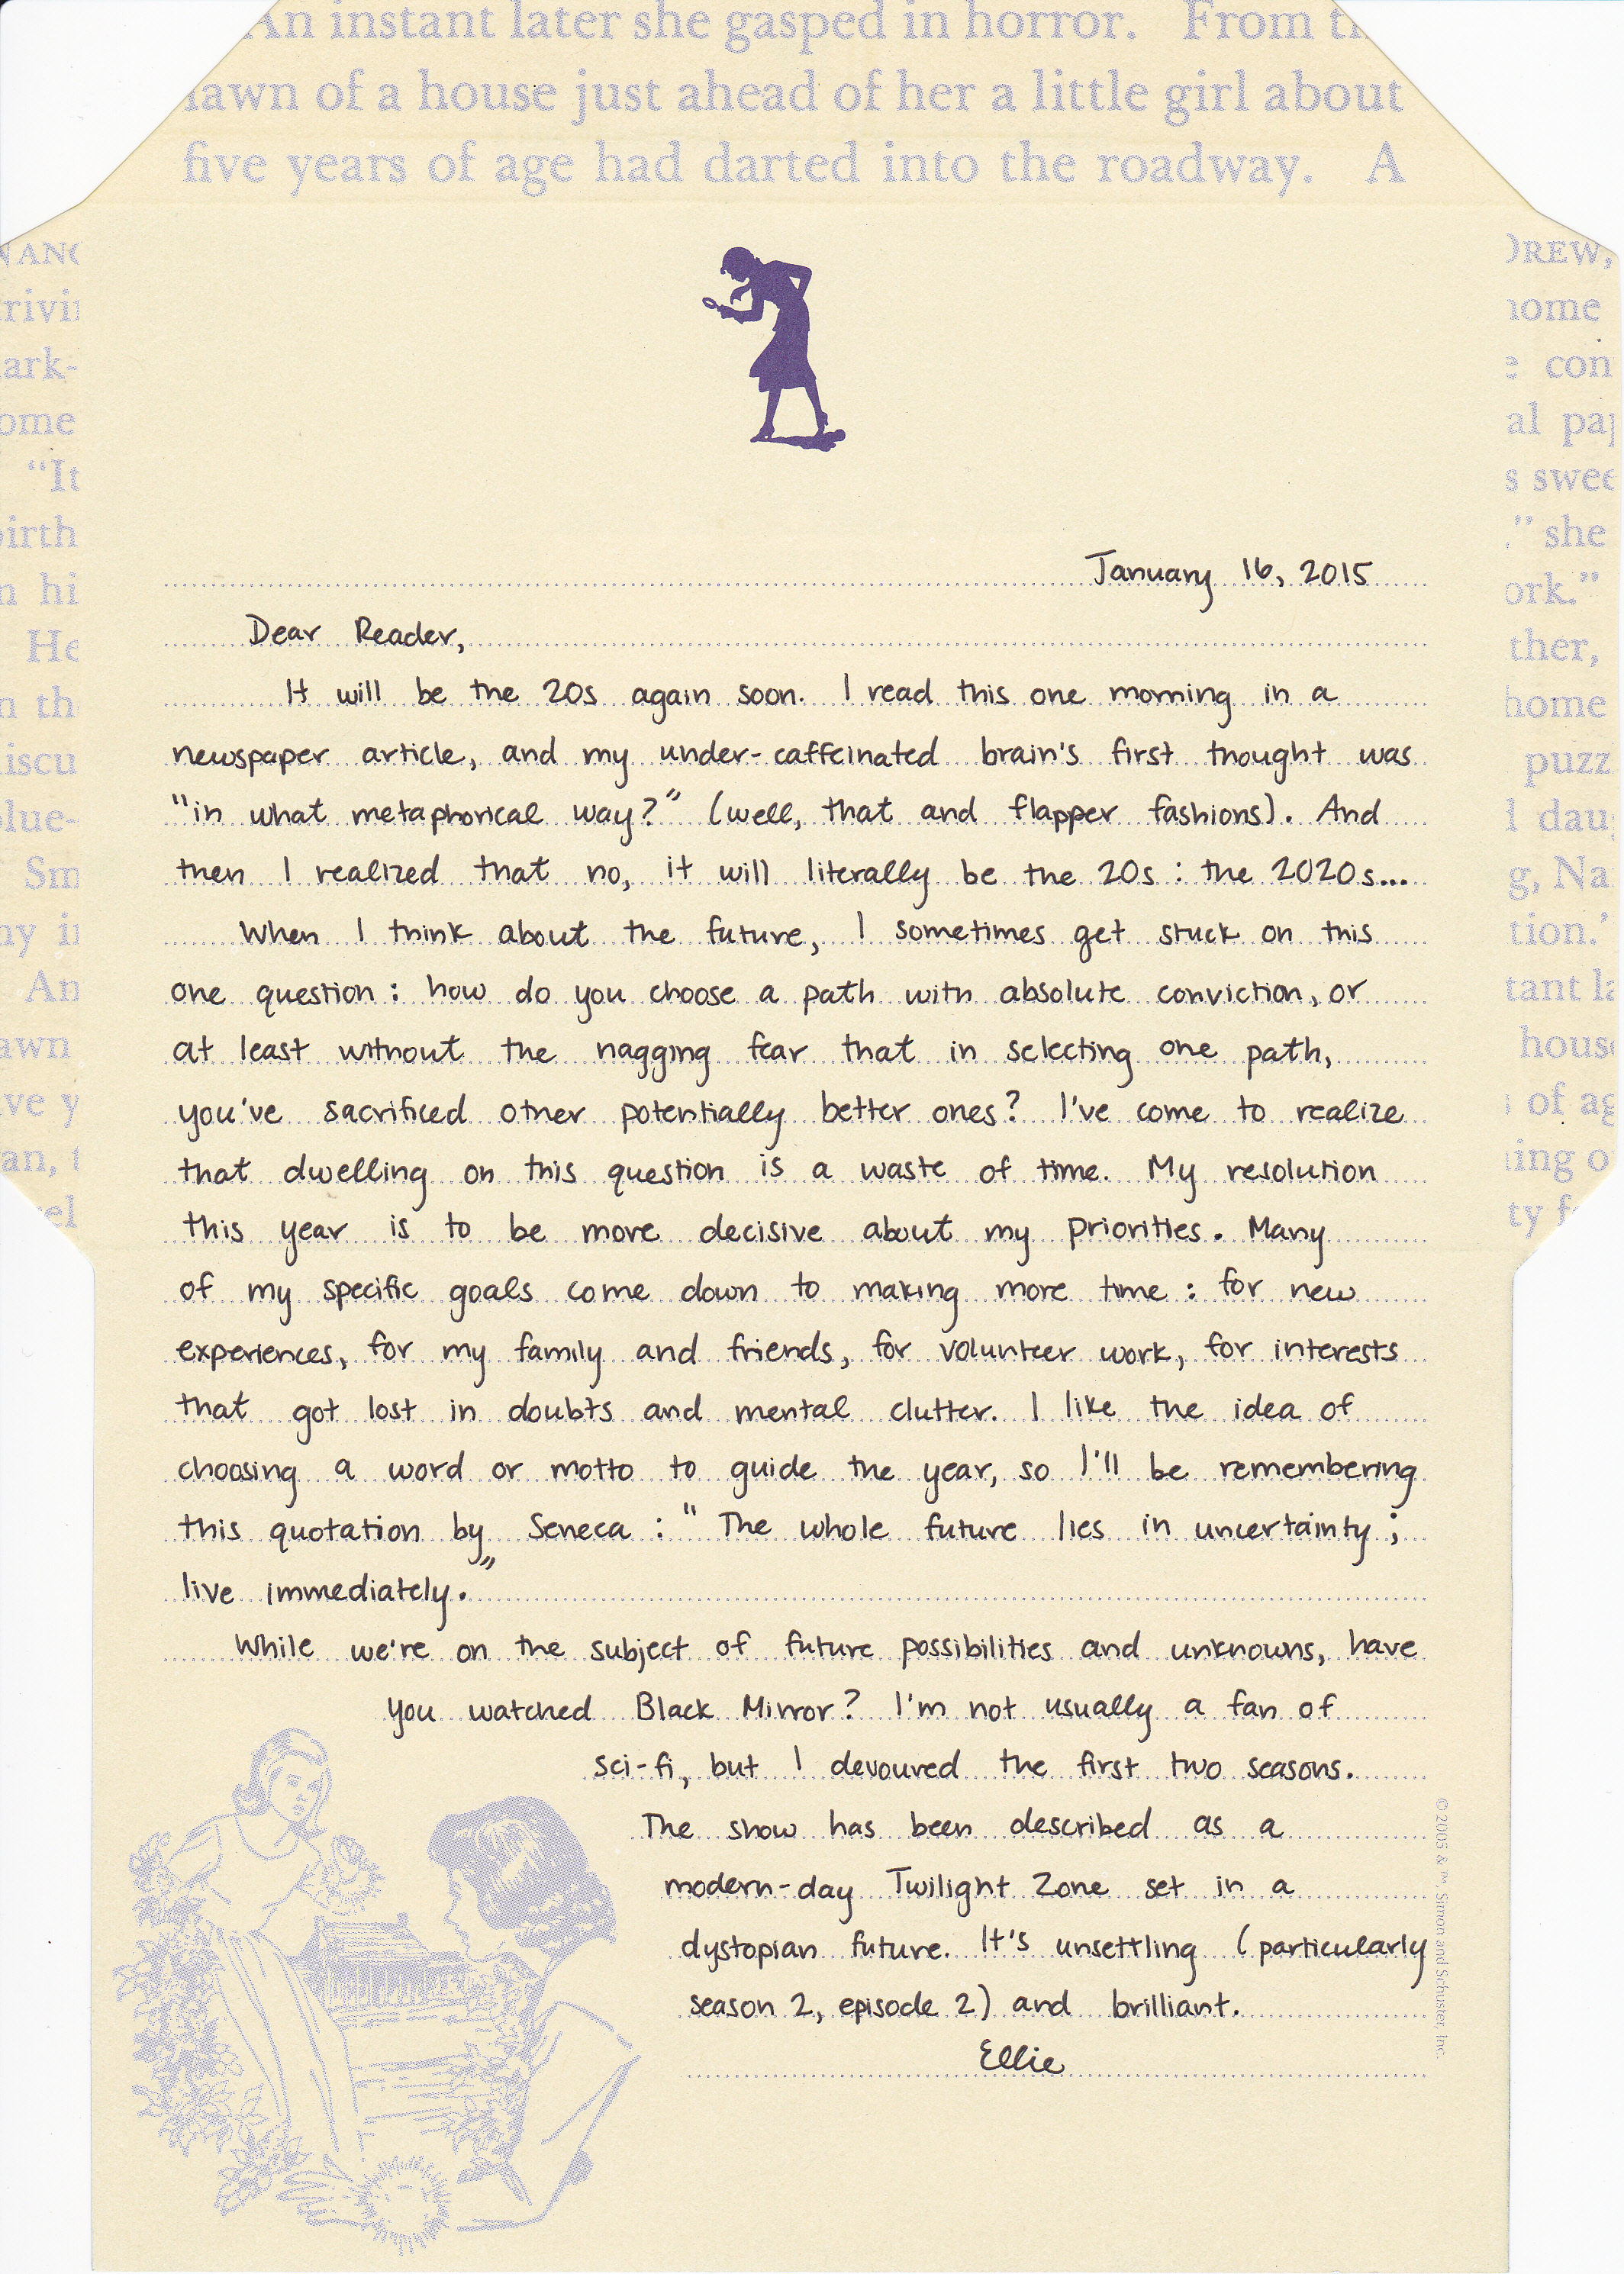 An instant later she gasped in horror. From
lawn of a house just ahead of her a little girl about
five years of age had darted into the roadway. A
DREW,
home
con
ome
al
"It
s
she
hi
ork."
He
ther,
home
puzz
Sm
g, Na
tion.'
An
tant
awn
of
January 16, 2015
Dear Reader,
It will be the 20s again soon. I read this one morning in a
newspaper article, and my under-caffeinated brain's first thought was
"in what metaphorical way?" (well, that and flapper fashions). And
then I realized that no, it will literally be the 20s: the 2020s...
When I think about the future, I sometimes get stuck on this
one question: how do you choose a path with absolute conviction, or
at least without the nagging fear that in selecting one path,
you've sacrificed other potentially better ones? I've come to realize
that dwelling on this question is a waste of time. My resolution
this year is to be more decisive about my priorities. Many
of my specific goals come down to making more time: for new
experiences, for my family and friends, for volunteer work, for interests
that got lost in doubts and mental clutter. I like the idea of
choosing a word or motto to guide the year, so I'll be remembering
this quotation by Seneca: "The whole future lies in uncertainty;
live immediately."
While we're on the subject of future possibilities and unknowns, have
you watched Black Mirror? I'm not usually a fan of
sci-fi, but I devoured the first two seasons.
The show has been described as a
modern-day Twilight Zone set in a
dystopian future. It's unsettling (particularly
season 2, episode 2) and brilliant.
Ellie
© 2005 & ™, Simon and Schuster, Inc.